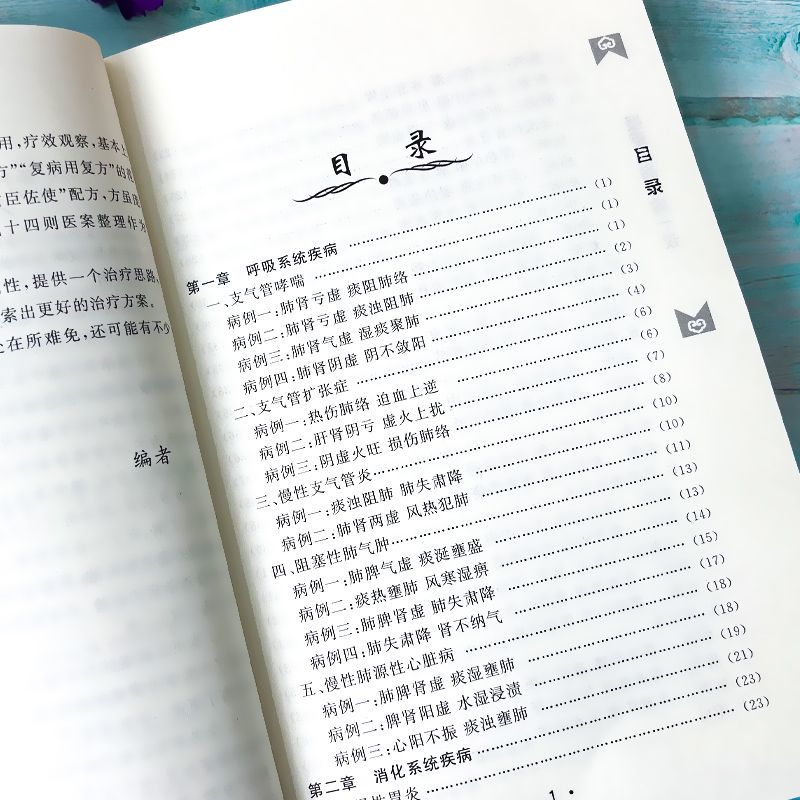 用,疗效观察,基本
方”“复病用复方”的
臣佐使”配方,方虽
十四则医案整理作为
性,提供一个治疗思路,
索出更好的治疗方案。
在所难免,还可能有不少
编者
目 录
目录
第一章 呼吸系统疾病 …… (1)
一、支气管哮喘 …… (1)
病例一:肺肾亏虚 痰阻肺络 …… (1)
病例二:肺肾亏虚 痰浊阻肺 …… (2)
病例三:肺肾气虚 湿痰聚肺 …… (3)
病例四:肺肾阴虚 阴不敛阳 …… (4)
二、支气管扩张症 …… (6)
病例一:热伤肺络 迫血上逆 …… (6)
病例二:肝肾阴亏 虚火上扰 …… (7)
病例三:阴虚火旺 损伤肺络 …… (8)
三、慢性支气管炎 …… (10)
病例一:痰浊阻肺 肺失肃降 …… (10)
病例二:肺肾两虚 风热犯肺 …… (11)
四、阻塞性肺气肿 …… (13)
病例一:肺脾气虚 痰涎壅盛 …… (13)
病例二:痰热壅肺 风寒湿痹 …… (14)
病例三:肺脾肾虚 肺失肃降 …… (15)
病例四:肺失肃降 肾不纳气 …… (17)
五、慢性肺源性心脏病 …… (18)
病例一:肺脾肾虚 痰湿壅肺 …… (18)
病例二:脾肾阳虚 水湿浸渍 …… (19)
病例三:心阳不振 痰浊壅肺 …… (21)
第二章 消化系统疾病 …… (23)
慢性胃炎 …… (23)
1